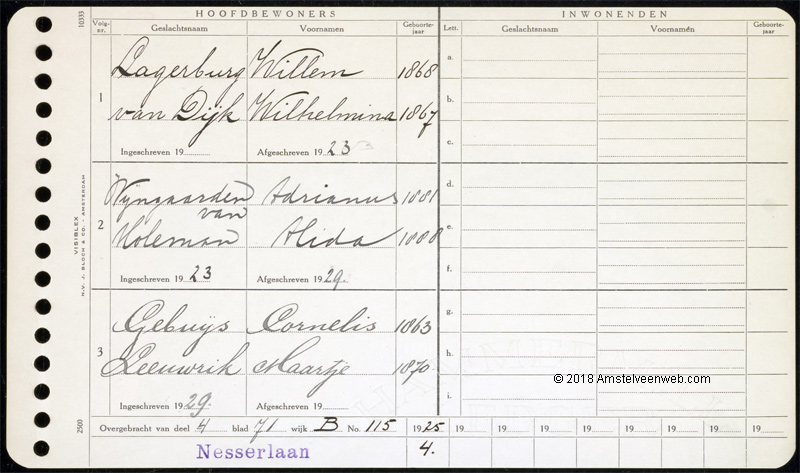 HOOFDBEWONERS INWONENDEN
Volg-nr. Geslachtsnaam Voornamen Geboorte-jaar Lett. Geslachtsnaam Voornamen Geboorte-jaar
10333
1
Lagerburg Willem 1868
van Dijk Wilhelmina 1867
7
Ingeschreven 19 Afgeschreven 19 23
2
Wijngaarden Adrianus 1881
van
Holeman Alida 1888
Ingeschreven 19 23 Afgeschreven 19 29.
3
Gebuijs Cornelis 1863
Leeuwrik Maartje 1870
Ingeschreven 19 29. Afgeschreven 19
a.
b.
c.
d.
e.
f.
g.
h.
i.
VISIBLEX
N.V. J. BLOCH & CO. - AMSTERDAM
2500
© 2018 Amstelveenweb.com
Overgebracht van deel 4 blad 71 wijk B No. 115 1925 19 19 19 19 19 19 19 19
Nesserlaan 4.